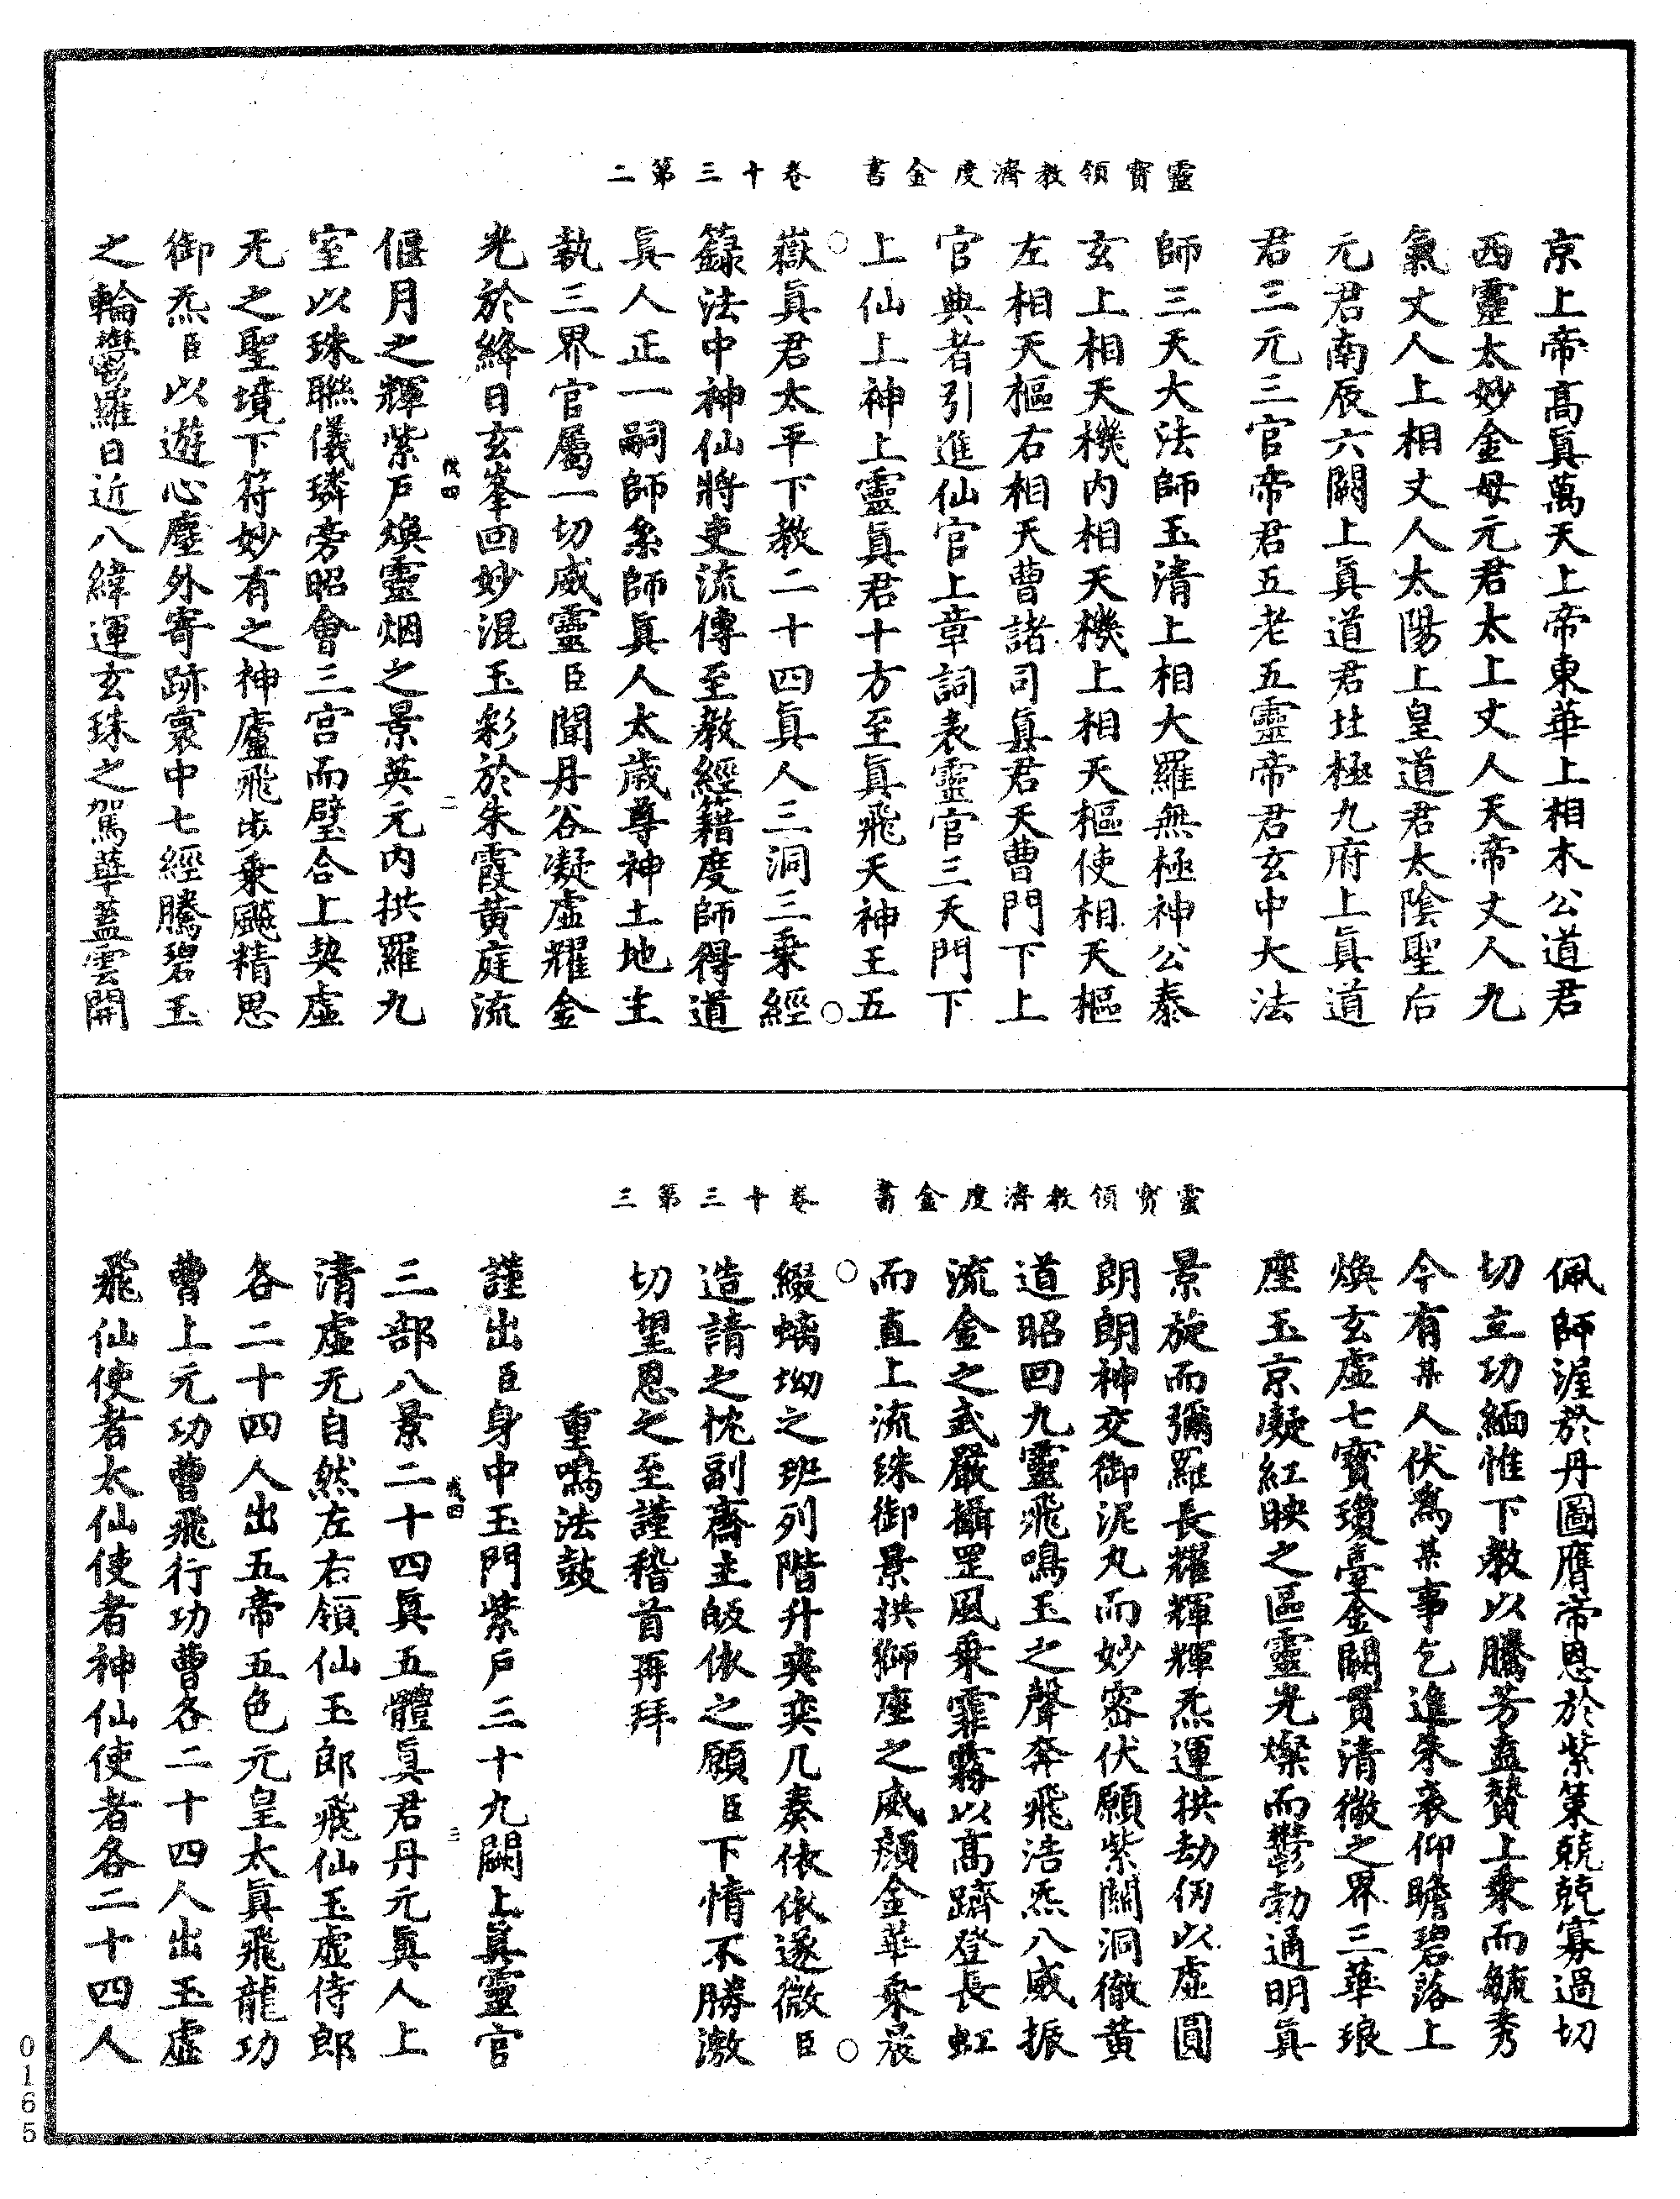 靈寶領教濟度金書　卷十三第二
京上帝高眞萬天上帝東華上相木公道君
西靈太妙金母元君太上丈人天帝丈人九
氣丈人上相丈人太陽上皇道君太陰聖后
元君南辰六闕上眞道君北極九府上眞道
君三元三官帝君五老五靈帝君玄中大法
師三天大法師玉清上相大羅無極神公泰
玄上相天機內相天機上相天樞使相天樞
左相天樞右相天曹諸司眞君天曹門下上
官典者引進仙官上章詞表靈官三天門下
上仙上神上靈眞君十方至眞飛天神王五
嶽眞君太平下教二十四眞人三洞三乗經
籙法中神仙將吏流傳至教經籍度師得道
眞人正一嗣師系師眞人太歲尊神土地主
執三界官屬一切威靈臣聞丹谷凝虛耀金
光於絳日玄峯回妙混玉彩於朱霞黃庭流
偃月之輝紫戶煥靈烟之景英元內拱羅九
室以珠聯儀璘旁昭會三宮而璧合上契虛
无之聖境下符妙有之神廬飛步乗飈精思
御炁臣以遊心塵外寄跡寰中七經騰碧玉
之輪鬱羅日近八緯運玄珠之駕華蓋雲開
戊四
二
靈寶領教濟度金書　卷十三第三
佩師渥於丹圖膺帝恩於紫策兢兢寡過切
切立功緬惟下教以騰芳盍贊上乗而毓秀
今有某人伏爲某事乞進朱衮仰瞻碧落上
煥玄虛七寶瓊臺金闕貫清微之界三華琅
座玉京凝紅映之區靈光燦而鬱勃通明眞
景旋而彌羅長耀輝輝炁運拱劫仞以虛圓
朗朗神交御泥丸而妙密伏願紫關洞徹黃
道昭回九靈飛鳴玉之聲奔飛浩炁八威振
流金之武嚴攝罡風乗霏霧以高躋登長虹
而直上流珠御景拱獅座之威顏金華乗晨
綴螭坳之班列階升奕奕几奏依依遂微臣
造請之忱副齋主皈依之願臣下情不勝激
切望恩之至謹稽首再拜
重鳴法鼓
謹出臣身中玉門紫戶三十九闕上眞靈官
三部八景二十四眞五體眞君丹元眞人上
清虛无自然左右領仙玉郎飛仙玉虛侍郎
各二十四人出五帝五色元皇太眞飛龍功
曹上元功曹飛行功曹各二十四人出玉虛
飛仙使者太仙使者神仙使者各二十四人
戊四
三
0165